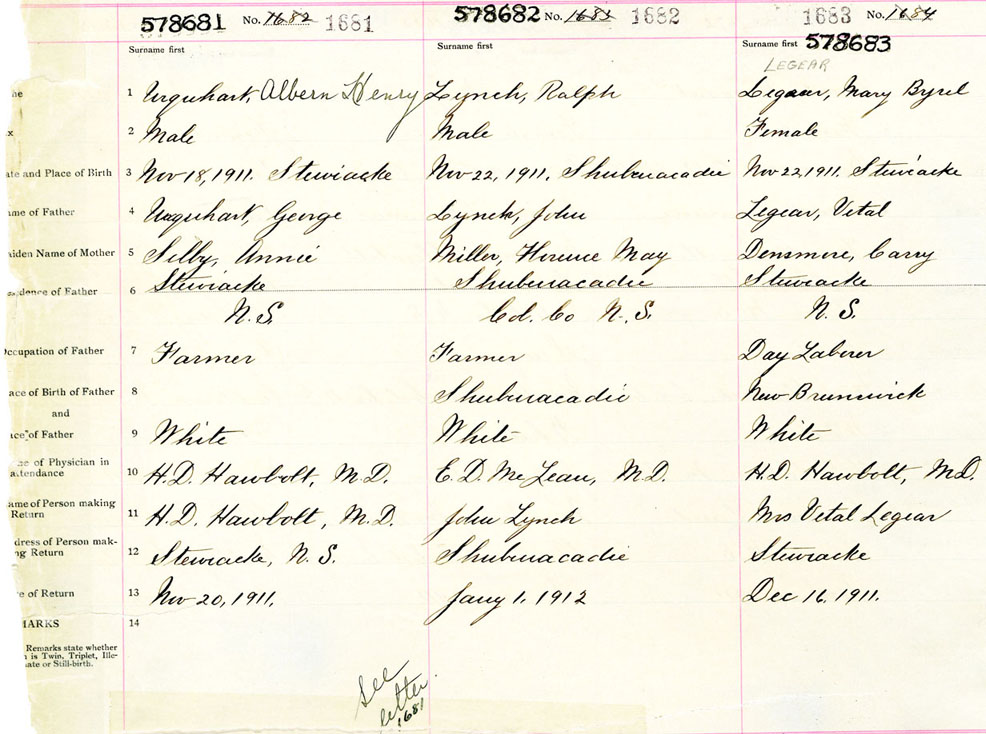 578681 No. 1682 1681
578682 No. 1683 1682
1683 No. 1684
Surname first
Surname first
Surname first 578683
LEGEAR
me 1 Urquhart, Albern Henry
Lynch, Ralph
Legear, Mary Byrel
x 2 Male
Male
Female
ate and Place of Birth 3 Nov 18, 1911. Stewiacke
Nov 22, 1911. Shubenacadie
Nov 22, 1911. Stewiacke
ame of Father 4 Urquhart, George
Lynch, John
Legear, Vital
aiden Name of Mother 5 Selby, Annie
Miller, Florence May
Densmore, Carry
idence of Father 6 Stewiacke
N.S.
Shubenacadie
Col. Co N.S.
Stewiacke
N.S.
Occupation of Father 7 Farmer
Farmer
Day Laborer
ace of Birth of Father 8
Shubenacadie
New Brunswick
and
ace of Father 9 White
White
White
me of Physician in
attendance 10 H.D. Hawbolt, M.D.
E.D. McLean, M.D.
H.D. Hawbolt, M.D.
ame of Person making
Return 11 H.D. Hawbolt, M.D.
John Lynch
Mrs Vital Legear
dress of Person mak-
ng Return 12 Stewiacke, N.S.
Shubenacadie
Stewiacke
e of Return 13 Nov 20, 1911.
Jany 1. 1912
Dec 16. 1911.
MARKS 14
Remarks state whether
n is Twin, Triplet, Ille-
ate or Still-birth.
See
letter
1681